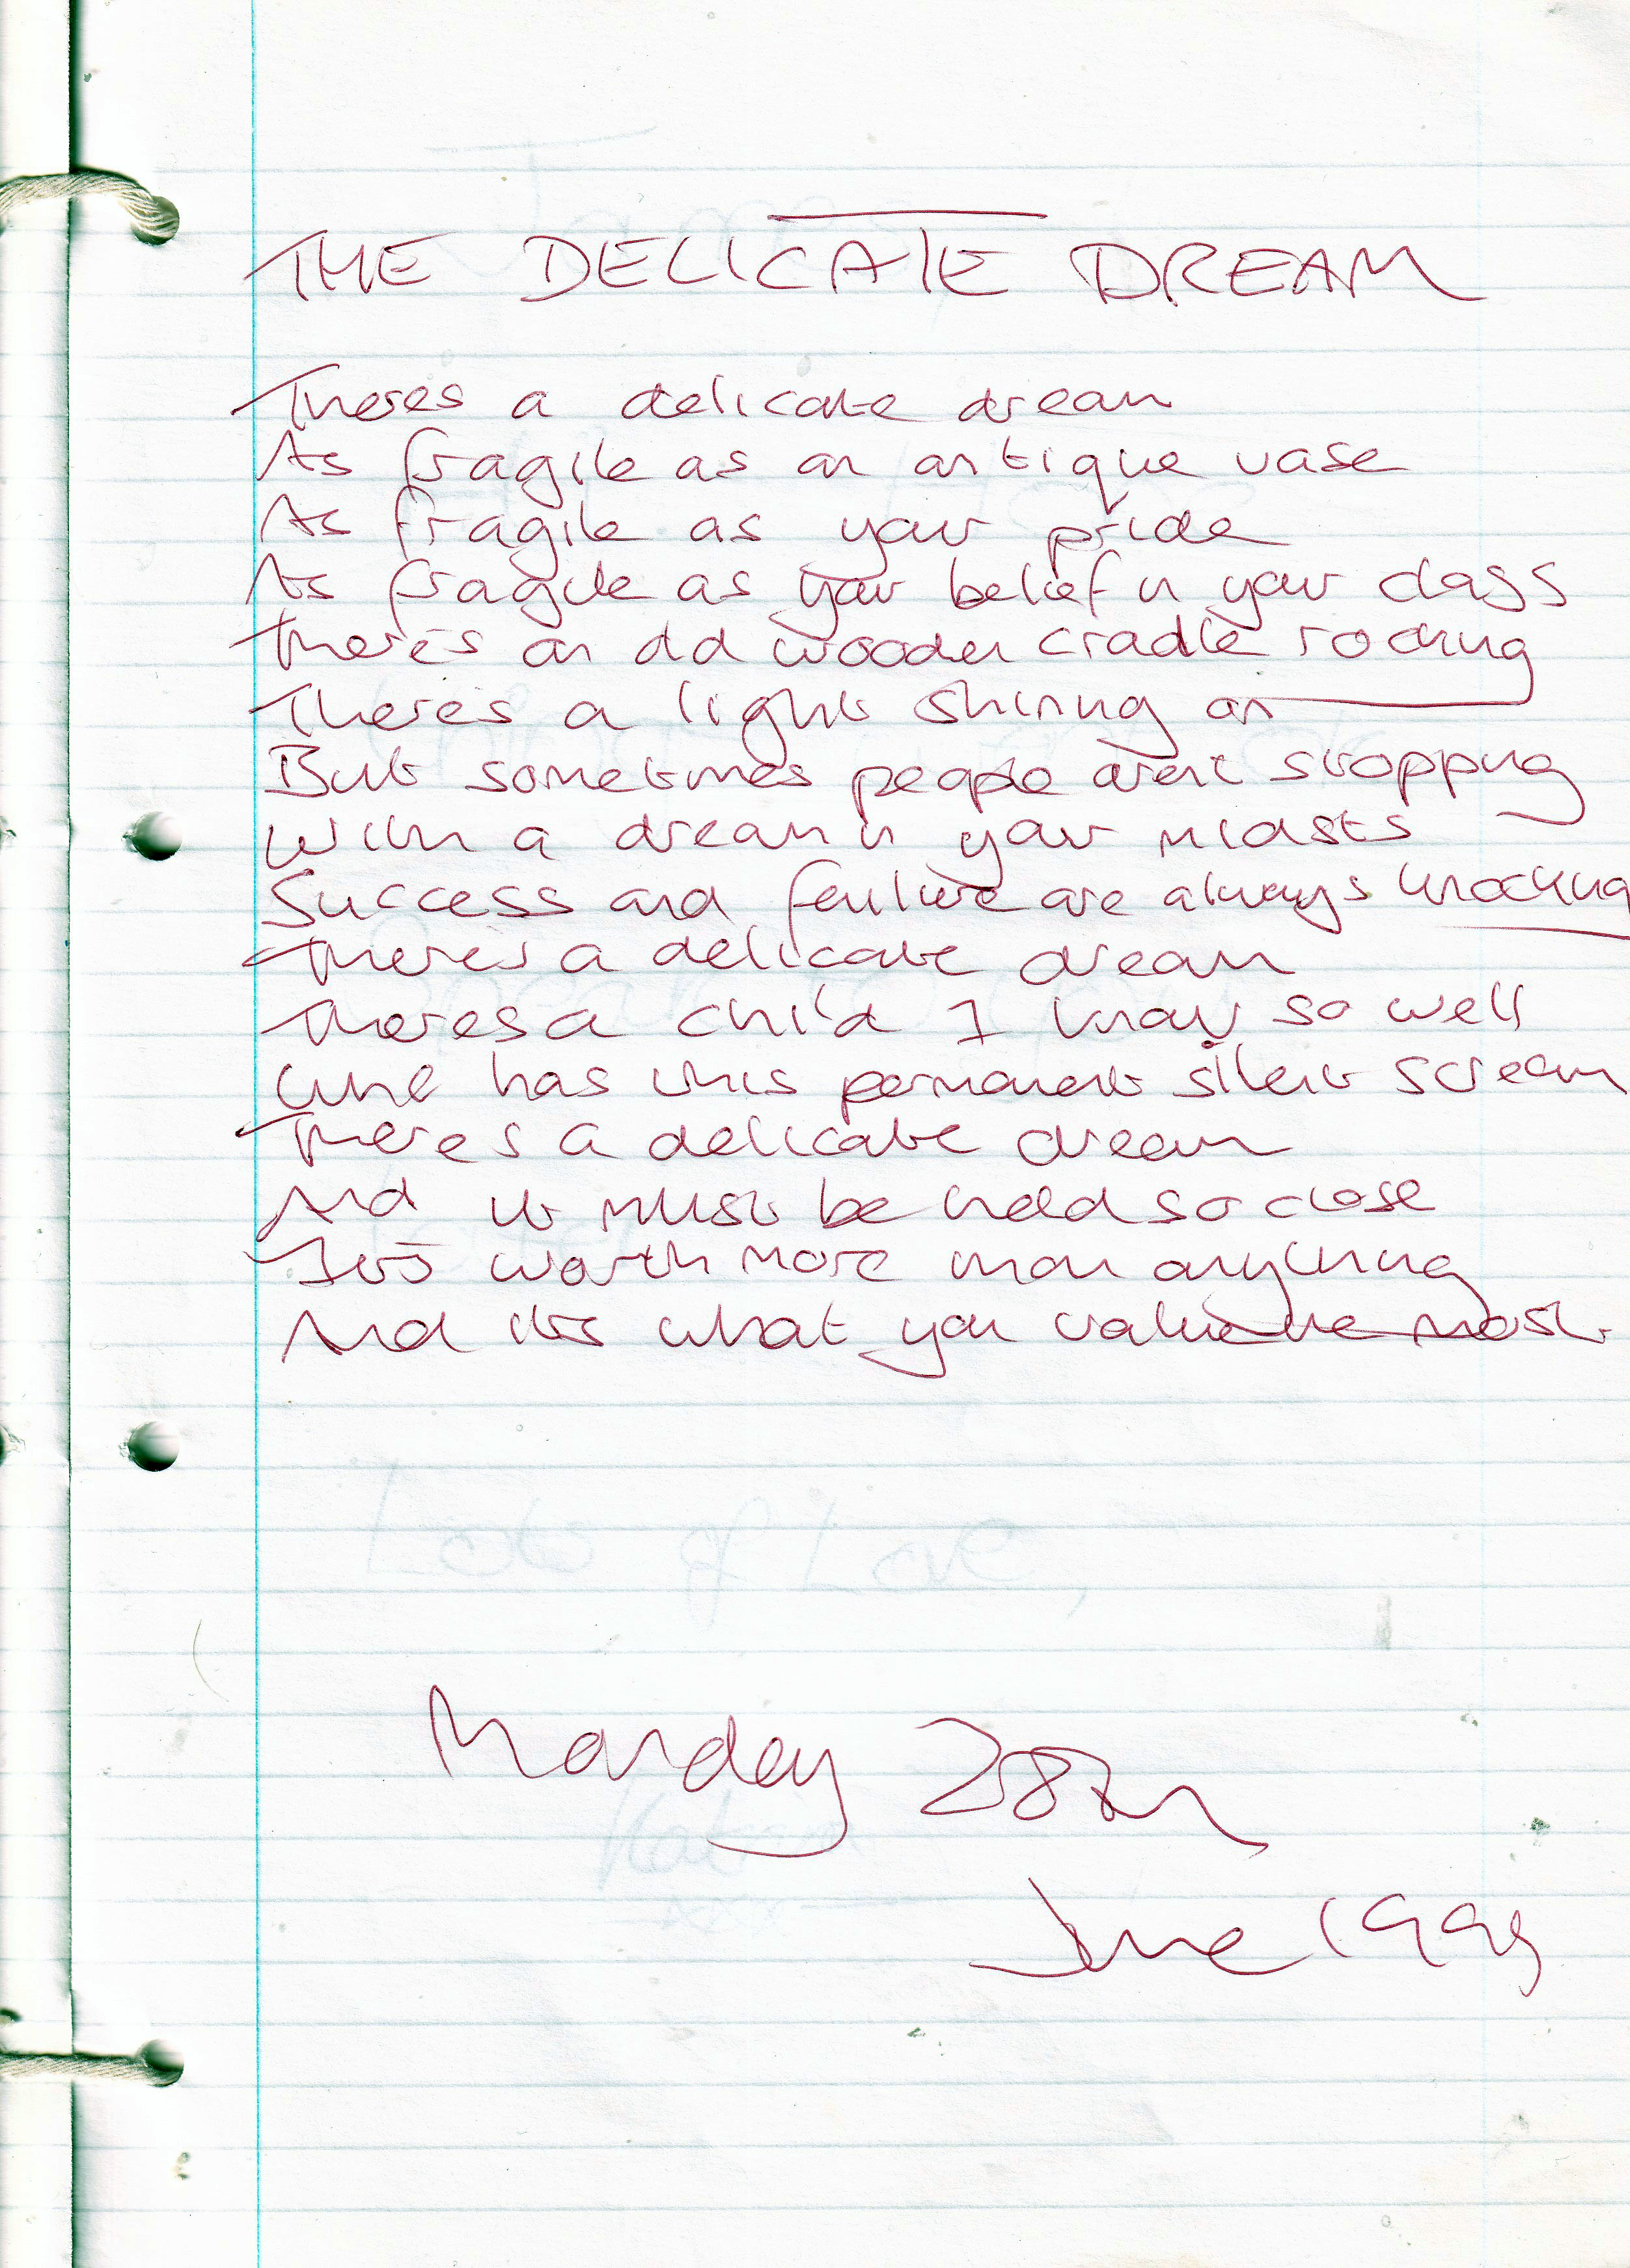 THE DELICATE DREAM
Theres a delicate dream
As fragile as an antique vase
As fragile as your pride
As fragile as your belief in your days
There's an old wooden cradle rocking
There's a light shining on
But sometimes people arent stopping
With a dream in your midsts
Success and failure are always knocking
There's a delicate dream
Theres a child I know so well
Who has this permanent silent scream
Theres a delicate dream
And it must be held so close
Its worth more than anything
And its what you value the most
Lots of Love,
Monday 28th
June 1999